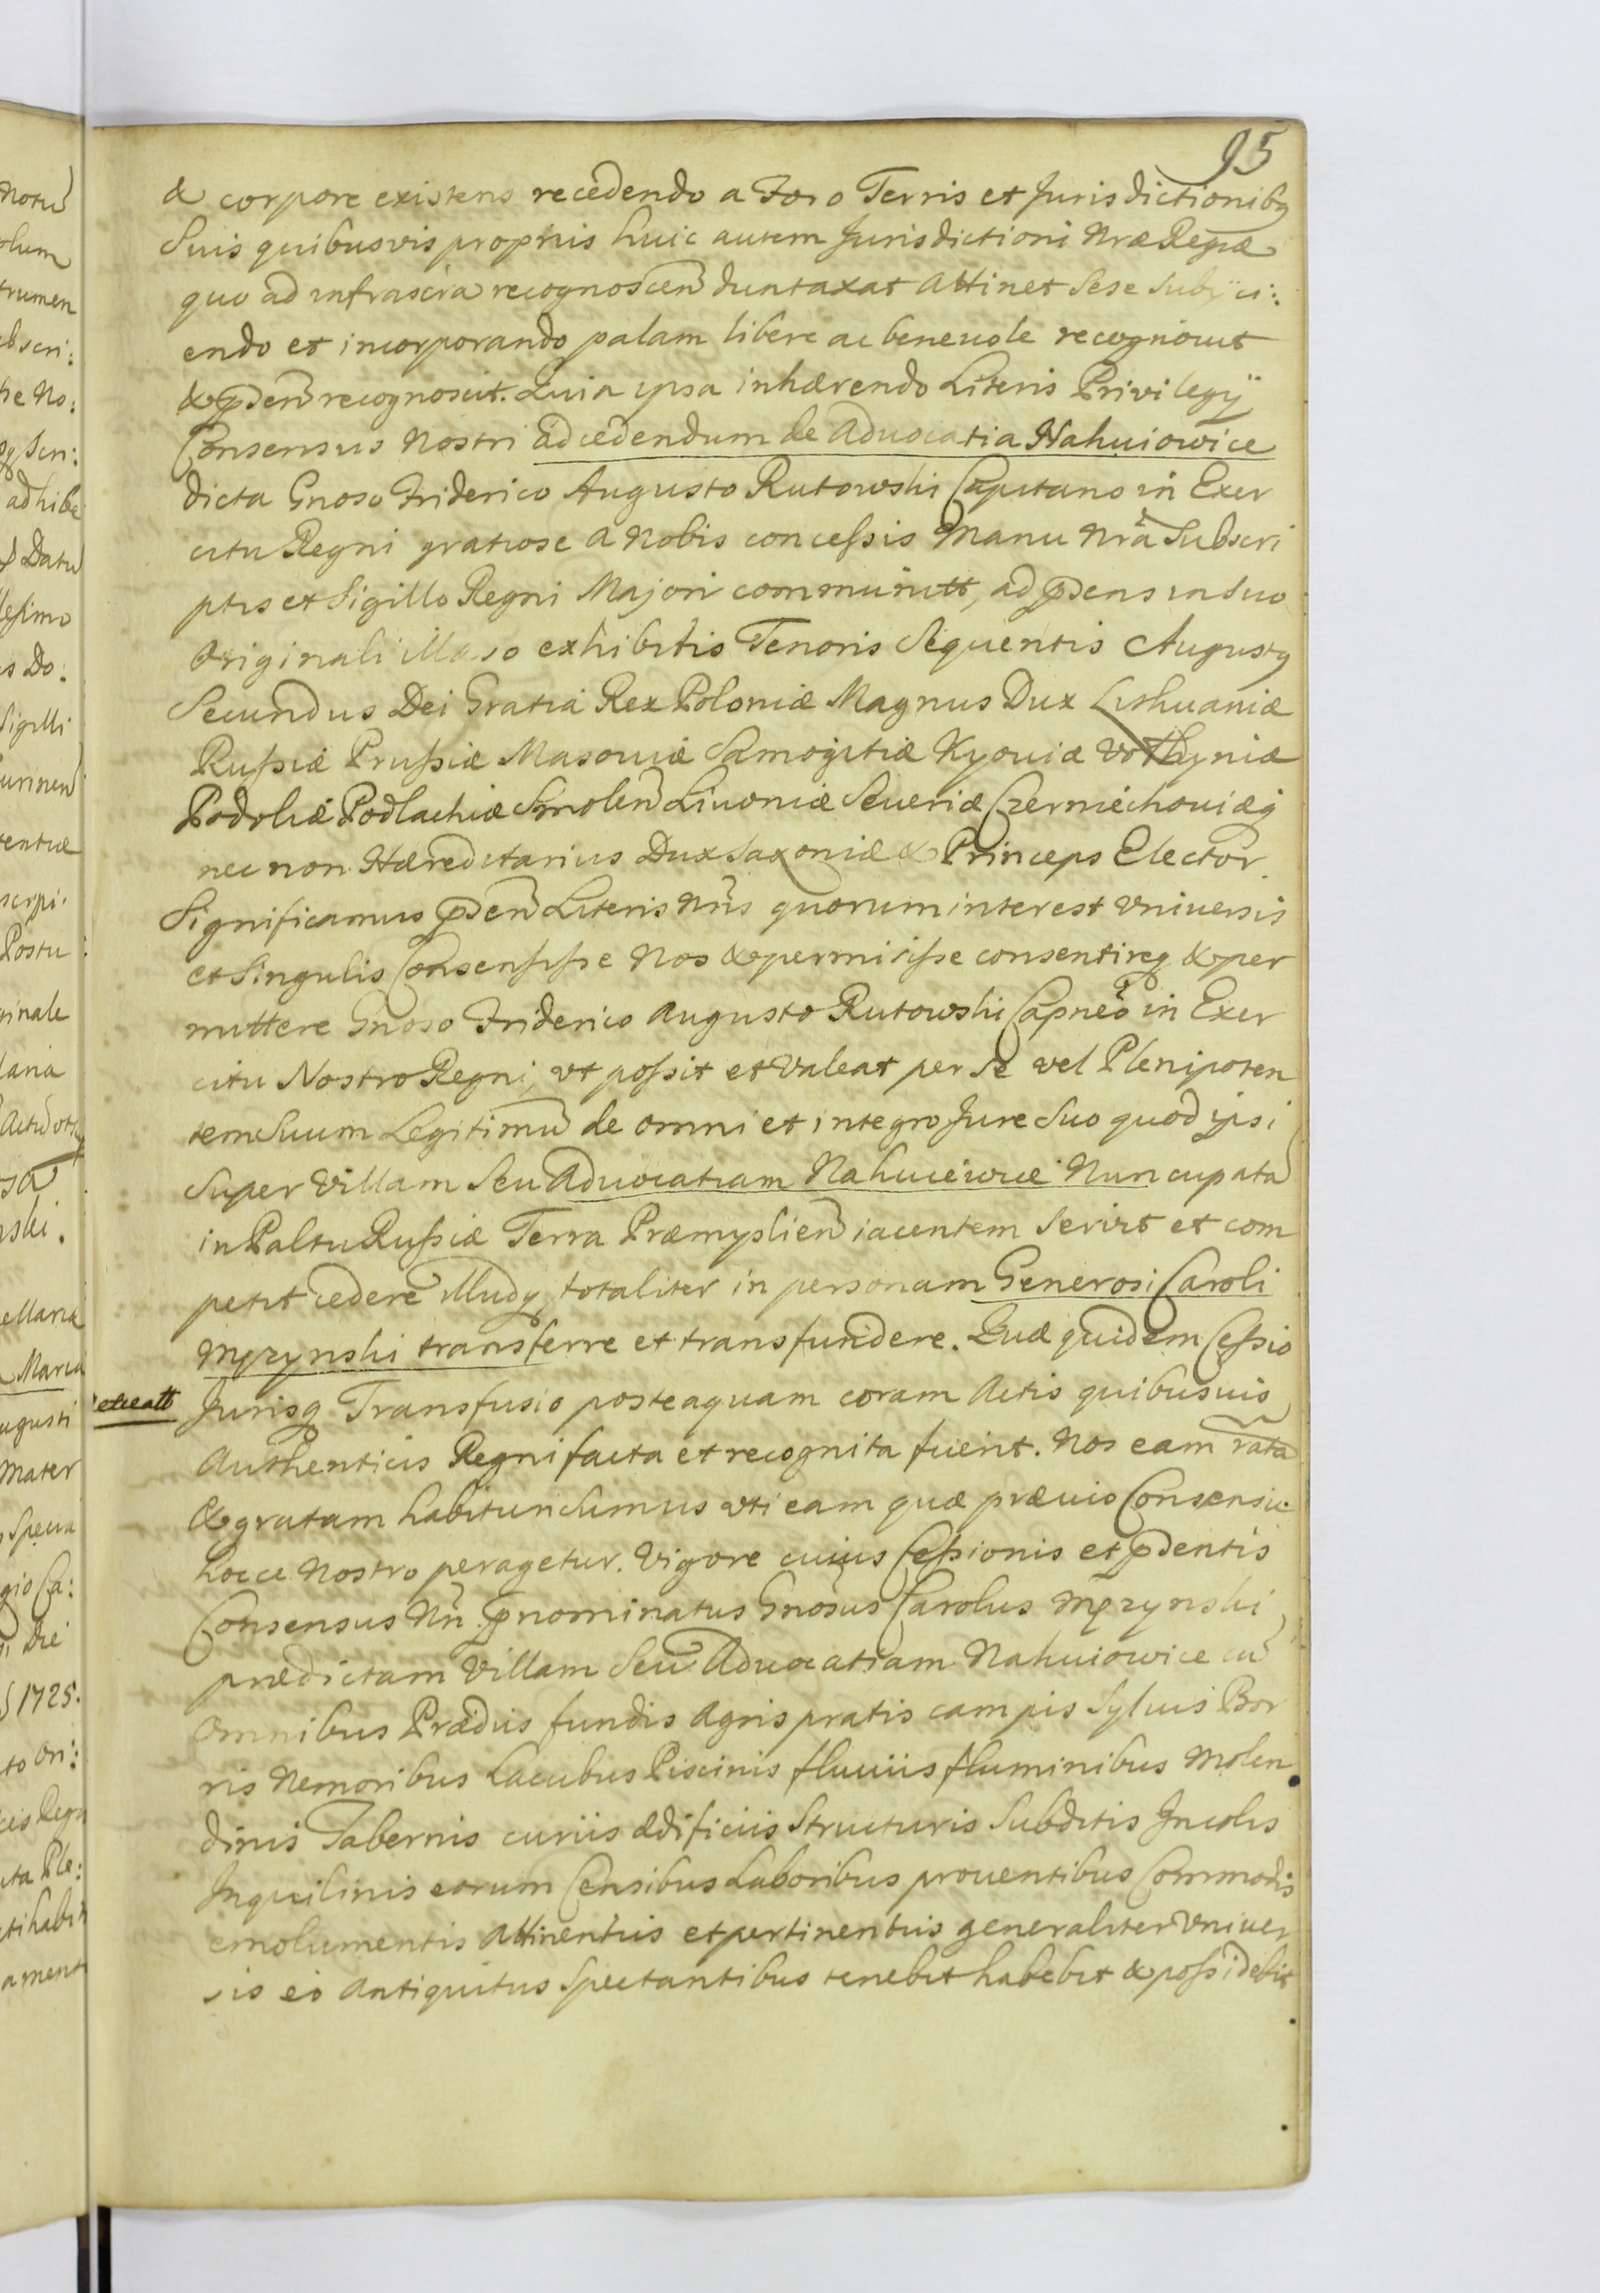 95
& corpore existens recedendo a Foro Terris et Jurisdictionibq
Suis quibusvis proprijs huic autem Jurisdictioni Nræ Regiæ
quo ad infrascra recognoscen duntaxat attinet sese subijci:
endo et incorporando palam libere ac beneuole recognouit
& pden recognoscit. Quia ipsa inhærendo Literis Privilegij
Consensus Nostri ad cedendum de Aduocatia Nahuiowice
dicta Gnoso Friderico Augusto Rutowski Capitano in Exer
citu Regni gratiose a Nobis concessis Manu Nrâ Subscri
ptis et Sigillo Regni Majori communitt, ad pdens in suo
Originali illæso exhibitis Tenoris Sequentis Augustq
Secundus Dei Gratia Rex Poloniæ Magnus Dux Lithuaniæ
Russiæ Prussiæ Masouiæ Samogitiæ Kyouiæ Volhyniæ
Podoliæ Podlachiæ Smolen Liuoniæ Seueriæ Czerniechouiæq
nec non Hæreditarius Dux Saxoniæ & Princeps Elector.
Significamus pden Literis Nris quorum interest Vniuersis
et Singulis Consensisse Nos & permisisse consentireq & per
mittere Gnoso Friderico Augusto Rutowski Capneo in Exer
citu Nostro Regni, vt possit et valeat per se vel Plenipoten
tem Suum Legitimu de omni et integro Jure Suo quod ipsi
super Villam seu Aduocatiam Nahuiewice Nuncupata
in Paltu Russiæ Terra Præmyslien iacentem servit et com
petit cedere illudq totaliter in personam Generosi Caroli
Mprzynski transferre et transfundere. Quæ quidem Cessio
Jurisq Transfusio posteaquam coram Actis quibusuis
Authenticis Regni facta et recognita fuerit. Nos eam rata
& gratam habituri sumus vti eam quæ præuio Consensu
hocce Nostro peragetur. Vigore cuius Cessionis et pdentis
Consensus Nri pnominatus Gnosus Carolus Mprzynski
prædictam Villam Seu Aduocatiam Nahuiowice cu
Omnibus Prædiis fundis Agris pratis campis Syluis Bor
ris Nemoribus Lacubus Piscinis fluuiis fluminibus Molen
dinis Tabernis curiis ædificiis Structuris Subditis Incolis
Inquilinis eorum Censibus Laboribus prouentibus Commodis
emolumentis Attinentiis et pertinentiis generaliter Vniuer
sis eò Antiquitus Spectantibus tenebit habebit & possidebit